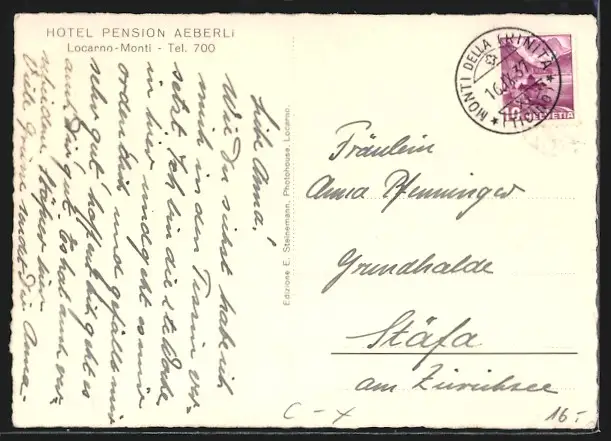 HOTEL PENSION AEBERLI
Locarno-Monti - Tel. 700
Liebe Anna!
Wie Du siehst habe ich
mich in den Tessin ver-
setzt. Ich bin die 1te Woche
in hier und geht es mir
ordentlich und gefällt mir
sehr gut, hoffentlich geht es
auch Dir gut. Es hat auch ver-
schieden hier
Viele Grüsse sendet Dir Anna.
Edizione E. Steinemann, Photohouse, Locarno.
MONTI DELLA TRINITA
(LOCARNO)
HELVETIA
10
Fräulein
Anna Pfenninger
Grundhalde
Stäfa
am Zürichsee
C - x
16.-